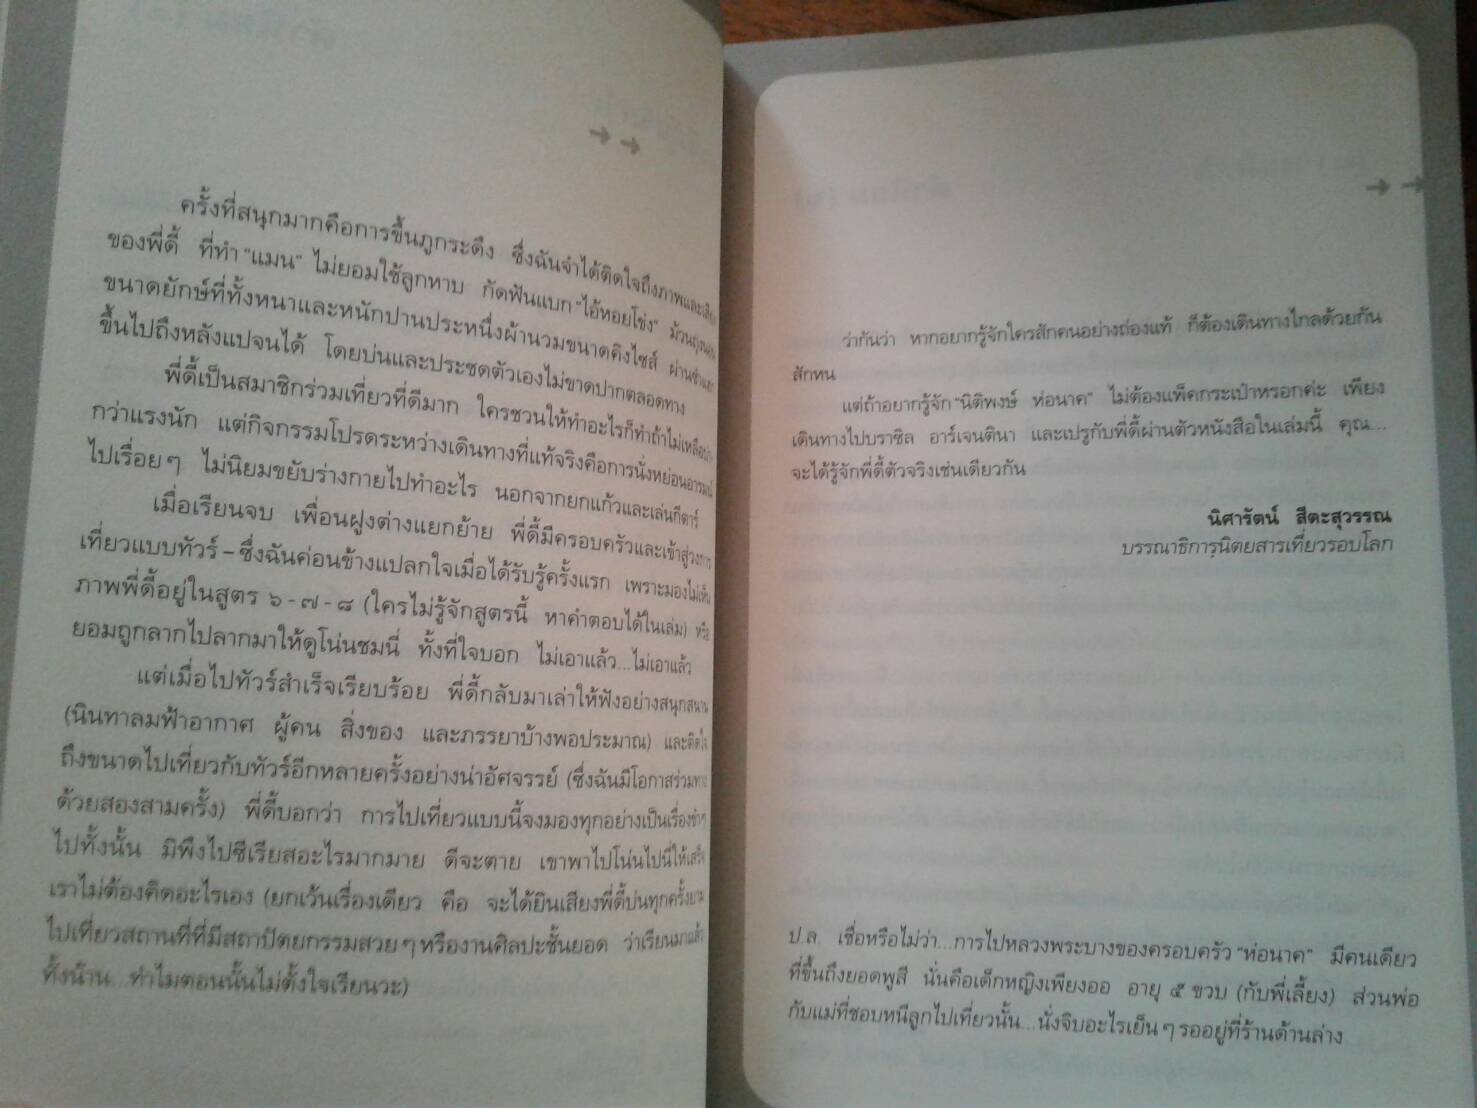 ครั้งที่สนุกมากคือการขึ้นภูกระดึง ซึ่งฉันจำได้ติดใจถึงภาพและเสียง
ของพี่ดี้ ที่ทำ "แมน" ไม่ยอมใช้ลูกหาบ กัดฟันแบก "ไอ้หอยโข่ง" ม้วนถุงนอน
ขนาดยักษ์ที่ทั้งหนาและหนักปานประหนึ่งผ้านวมขนาดคิงไซส์ ผ่านซำแฮก
ขึ้นไปถึงหลังแปจนได้ โดยบ่นและประชดตัวเองไม่ขาดปากตลอดทาง
พี่ดี้เป็นสมาชิกร่วมเที่ยวที่ดีมาก ใครชวนให้ทำอะไรก็ทำถ้าไม่เหลือบ่า
กว่าแรงนัก แต่กิจกรรมโปรดระหว่างเดินทางที่แท้จริงคือการนั่งหย่อนอารมณ์
ไปเรื่อยๆ ไม่นิยมขยับร่างกายไปทำอะไร นอกจากยกแก้วและเล่นกีตาร์
เมื่อเรียนจบ เพื่อนฝูงต่างแยกย้าย พี่ดี้มีครอบครัวและเข้าสู่วงการ
เที่ยวแบบทัวร์ – ซึ่งฉันค่อนข้างแปลกใจเมื่อได้รับรู้ครั้งแรก เพราะมองไม่เห็น
ภาพพี่ดี้อยู่ในสูตร ๖ - ๗ - ๘ (ใครไม่รู้จักสูตรนี้ หาคำตอบได้ในเล่ม) หรือ
ยอมถูกลากไปลากมาให้ดูโน่นชมนี่ ทั้งที่ใจบอก ไม่เอาแล้ว...ไม่เอาแล้ว
แต่เมื่อไปทัวร์สำเร็จเรียบร้อย พี่ดี้กลับมาเล่าให้ฟังอย่างสนุกสนาน
(นินทาลมฟ้าอากาศ ผู้คน สิ่งของ และภรรยาบ้างพอประมาณ) และติดใจ
ถึงขนาดไปเที่ยวกับทัวร์อีกหลายครั้งอย่างน่าอัศจรรย์ (ซึ่งฉันมีโอกาสร่วมทาง
ด้วยสองสามครั้ง) พี่ดี้บอกว่า การไปเที่ยวแบบนี้จงมองทุกอย่างเป็นเรื่องขำๆ
ไปทั้งนั้น มิพึงไปซีเรียสอะไรมากมาย ดีจะตาย เขาพาไปโน่นไปนี่ให้เสร็จ
เราไม่ต้องคิดอะไรเอง (ยกเว้นเรื่องเดียว คือ จะได้ยินเสียงพี่ดี้บ่นทุกครั้งยาม
ไปเที่ยวสถานที่ที่มีสถาปัตยกรรมสวยๆ หรืองานศิลปะชั้นยอด ว่าเรียนมาแล้ว
ทั้งน้าน...ทำไมตอนนั้นไม่ตั้งใจเรียนวะ)
ว่ากันว่า หากอยากรู้จักใครสักคนอย่างถ่องแท้ ก็ต้องเดินทางไกลด้วยกัน
สักหน
แต่ถ้าอยากรู้จัก "นิติพงษ์ ห่อนาค" ไม่ต้องแพ็คกระเป๋าหรอกค่ะ เพียง
เดินทางไปบราซิล อาร์เจนตินา และเปรูกับพี่ดี้ผ่านตัวหนังสือในเล่มนี้ คุณ...
จะได้รู้จักพี่ดี้ตัวจริงเช่นเดียวกัน
นิศารัตน์ สีตะสุวรรณ
บรรณาธิการนิตยสารเที่ยวรอบโลก
ป.ล. เชื่อหรือไม่ว่า...การไปหลวงพระบางของครอบครัว "ห่อนาค" มีคนเดียว
ที่ขึ้นถึงยอดพูสี นั่นคือเด็กหญิงเพียงออ อายุ ๕ ขวบ (กับพี่เลี้ยง) ส่วนพ่อ
กับแม่ที่ชอบหนีลูกไปเที่ยวนั้น...นั่งจิบอะไรเย็นๆ รออยู่ที่ร้านด้านล่าง